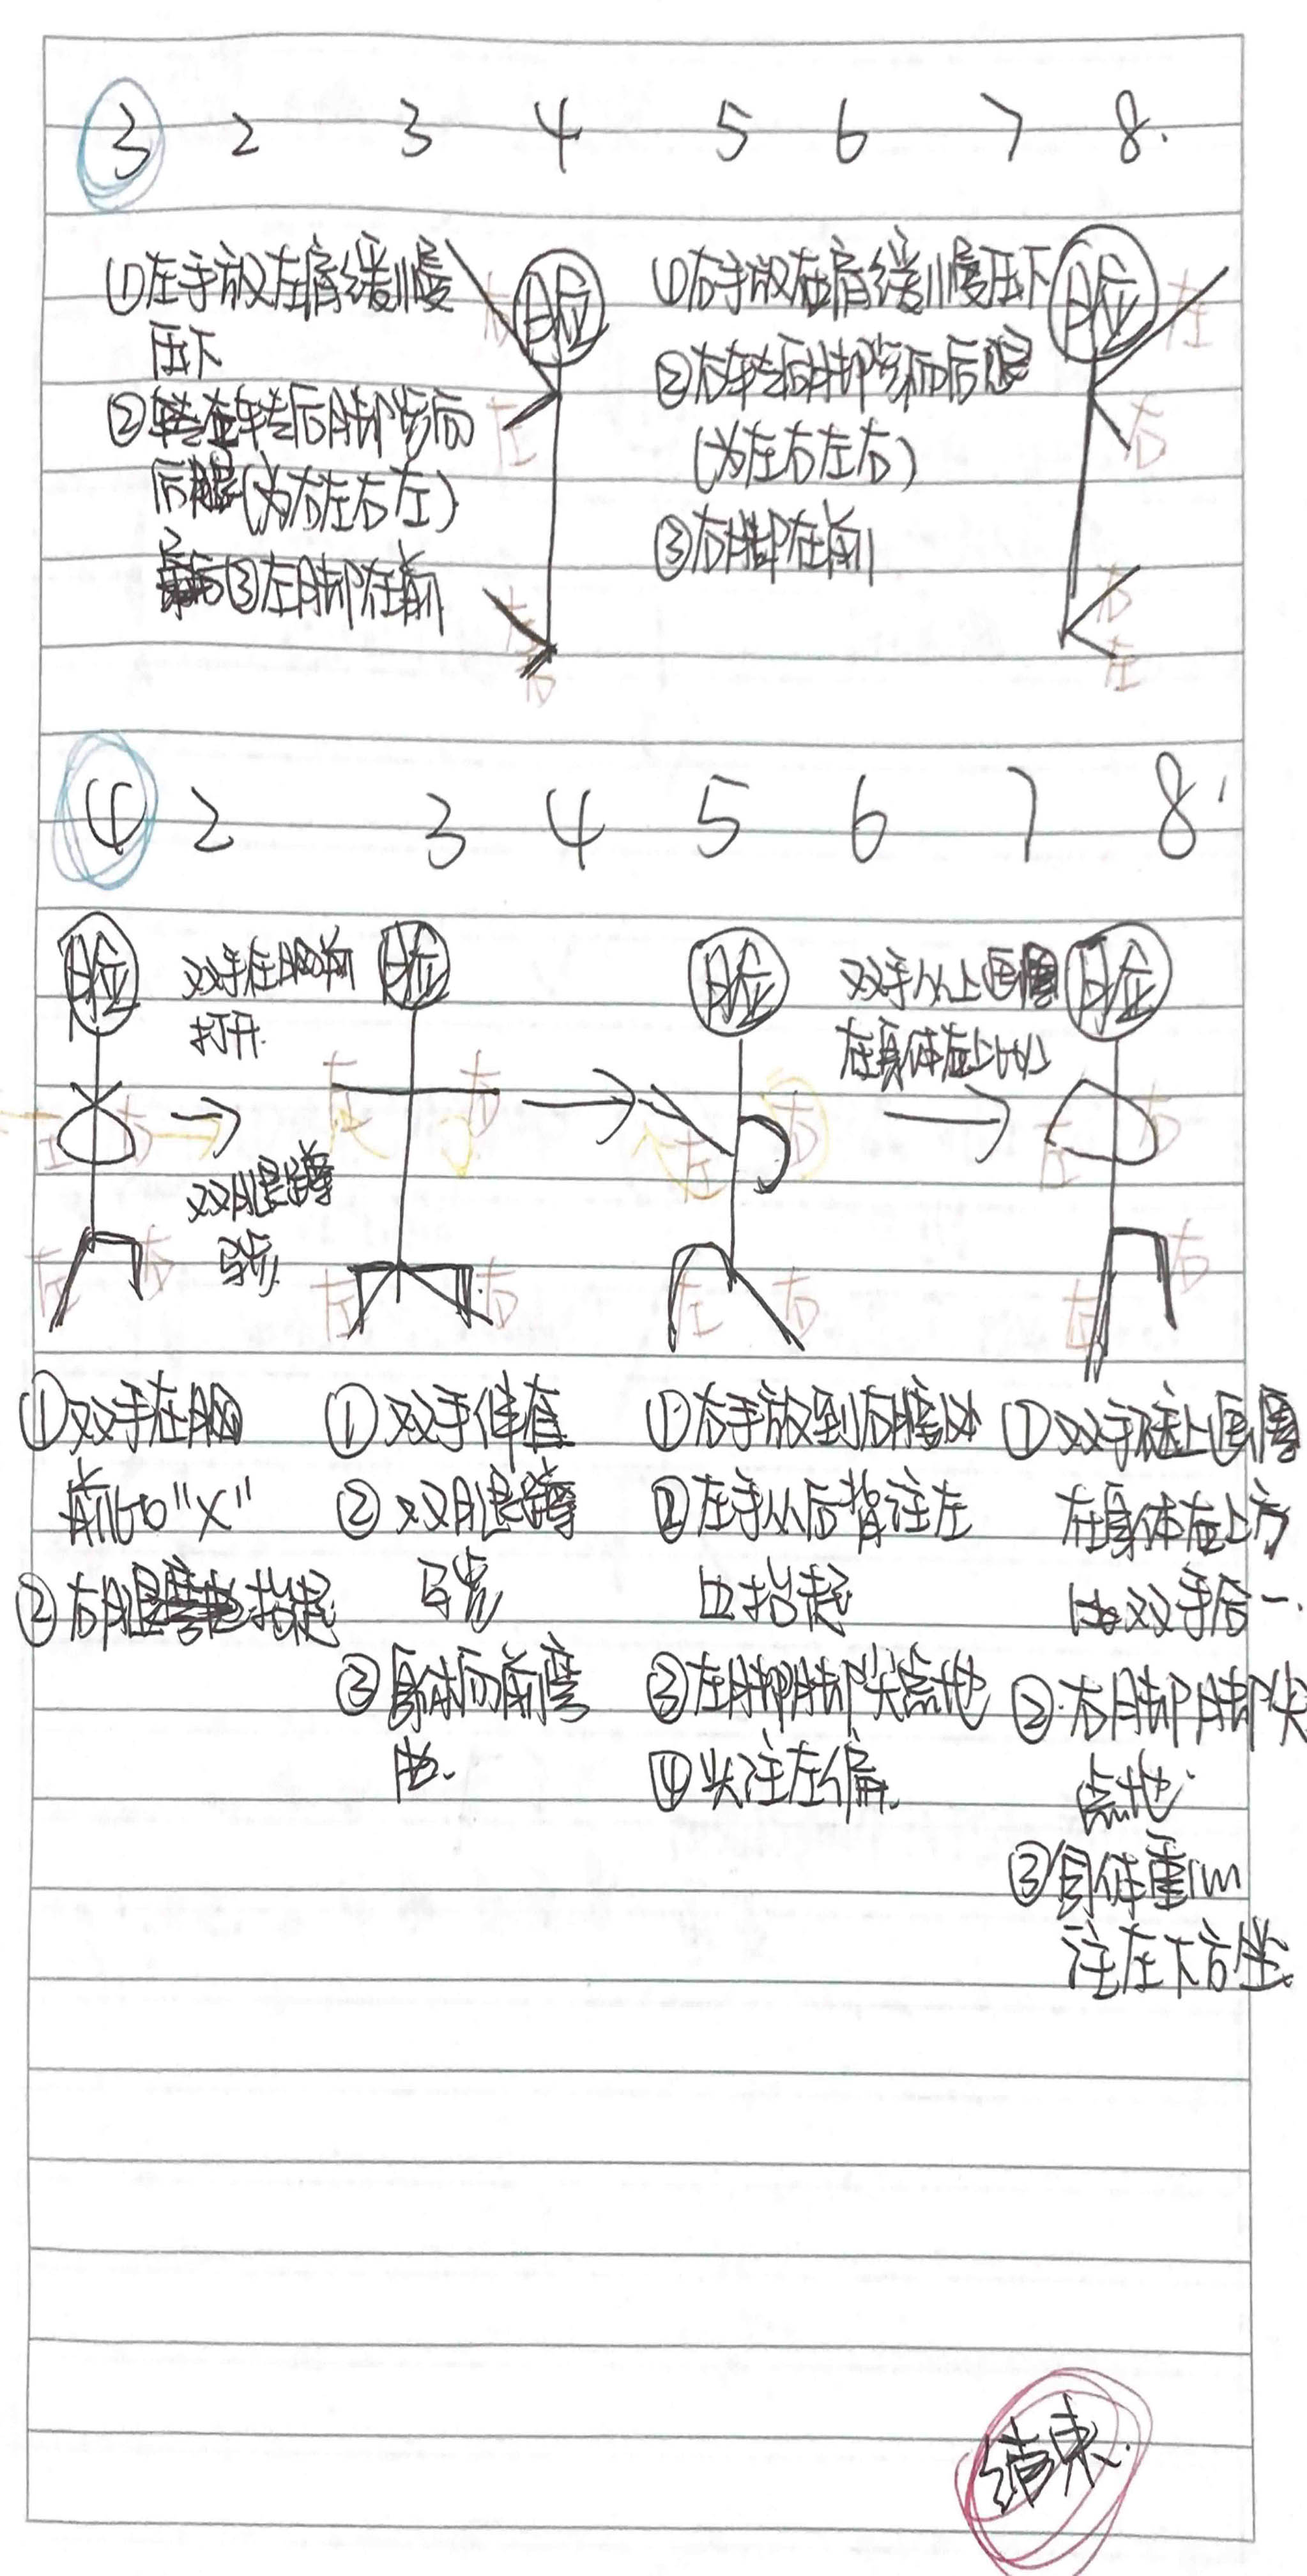 3 2 3 4 5 6 7 8.
①左手放左肩缓慢
压下
②左转后脚步向
后退(为右左右左)
③左脚在前
脸
右
左
左
右
①右手放右肩缓慢压下
②右转后脚步向后退
(为左右左右)
③右脚在前
脸
左
右
右
左
4 2 3 4 5 6 7 8
脸
双手在胸前
打开
脸
脸
双手从上画圈
在身体左上方
脸
左
右
左
右
左
右
左
右
双腿蹲
左
右
左
右
左
右
左
右
①双手在胸
前"X"
②右腿抬起
①双手伸直
②双腿蹲
③身体向前弯
曲.
①右手放到后腰处
②左手从后背往左
抬起
③左脚脚尖点地
④头往左偏.
①双手往上画圈
在身体左上方
双手合一
②右脚脚尖
点地
③身体重心
往左下后坐
结束.